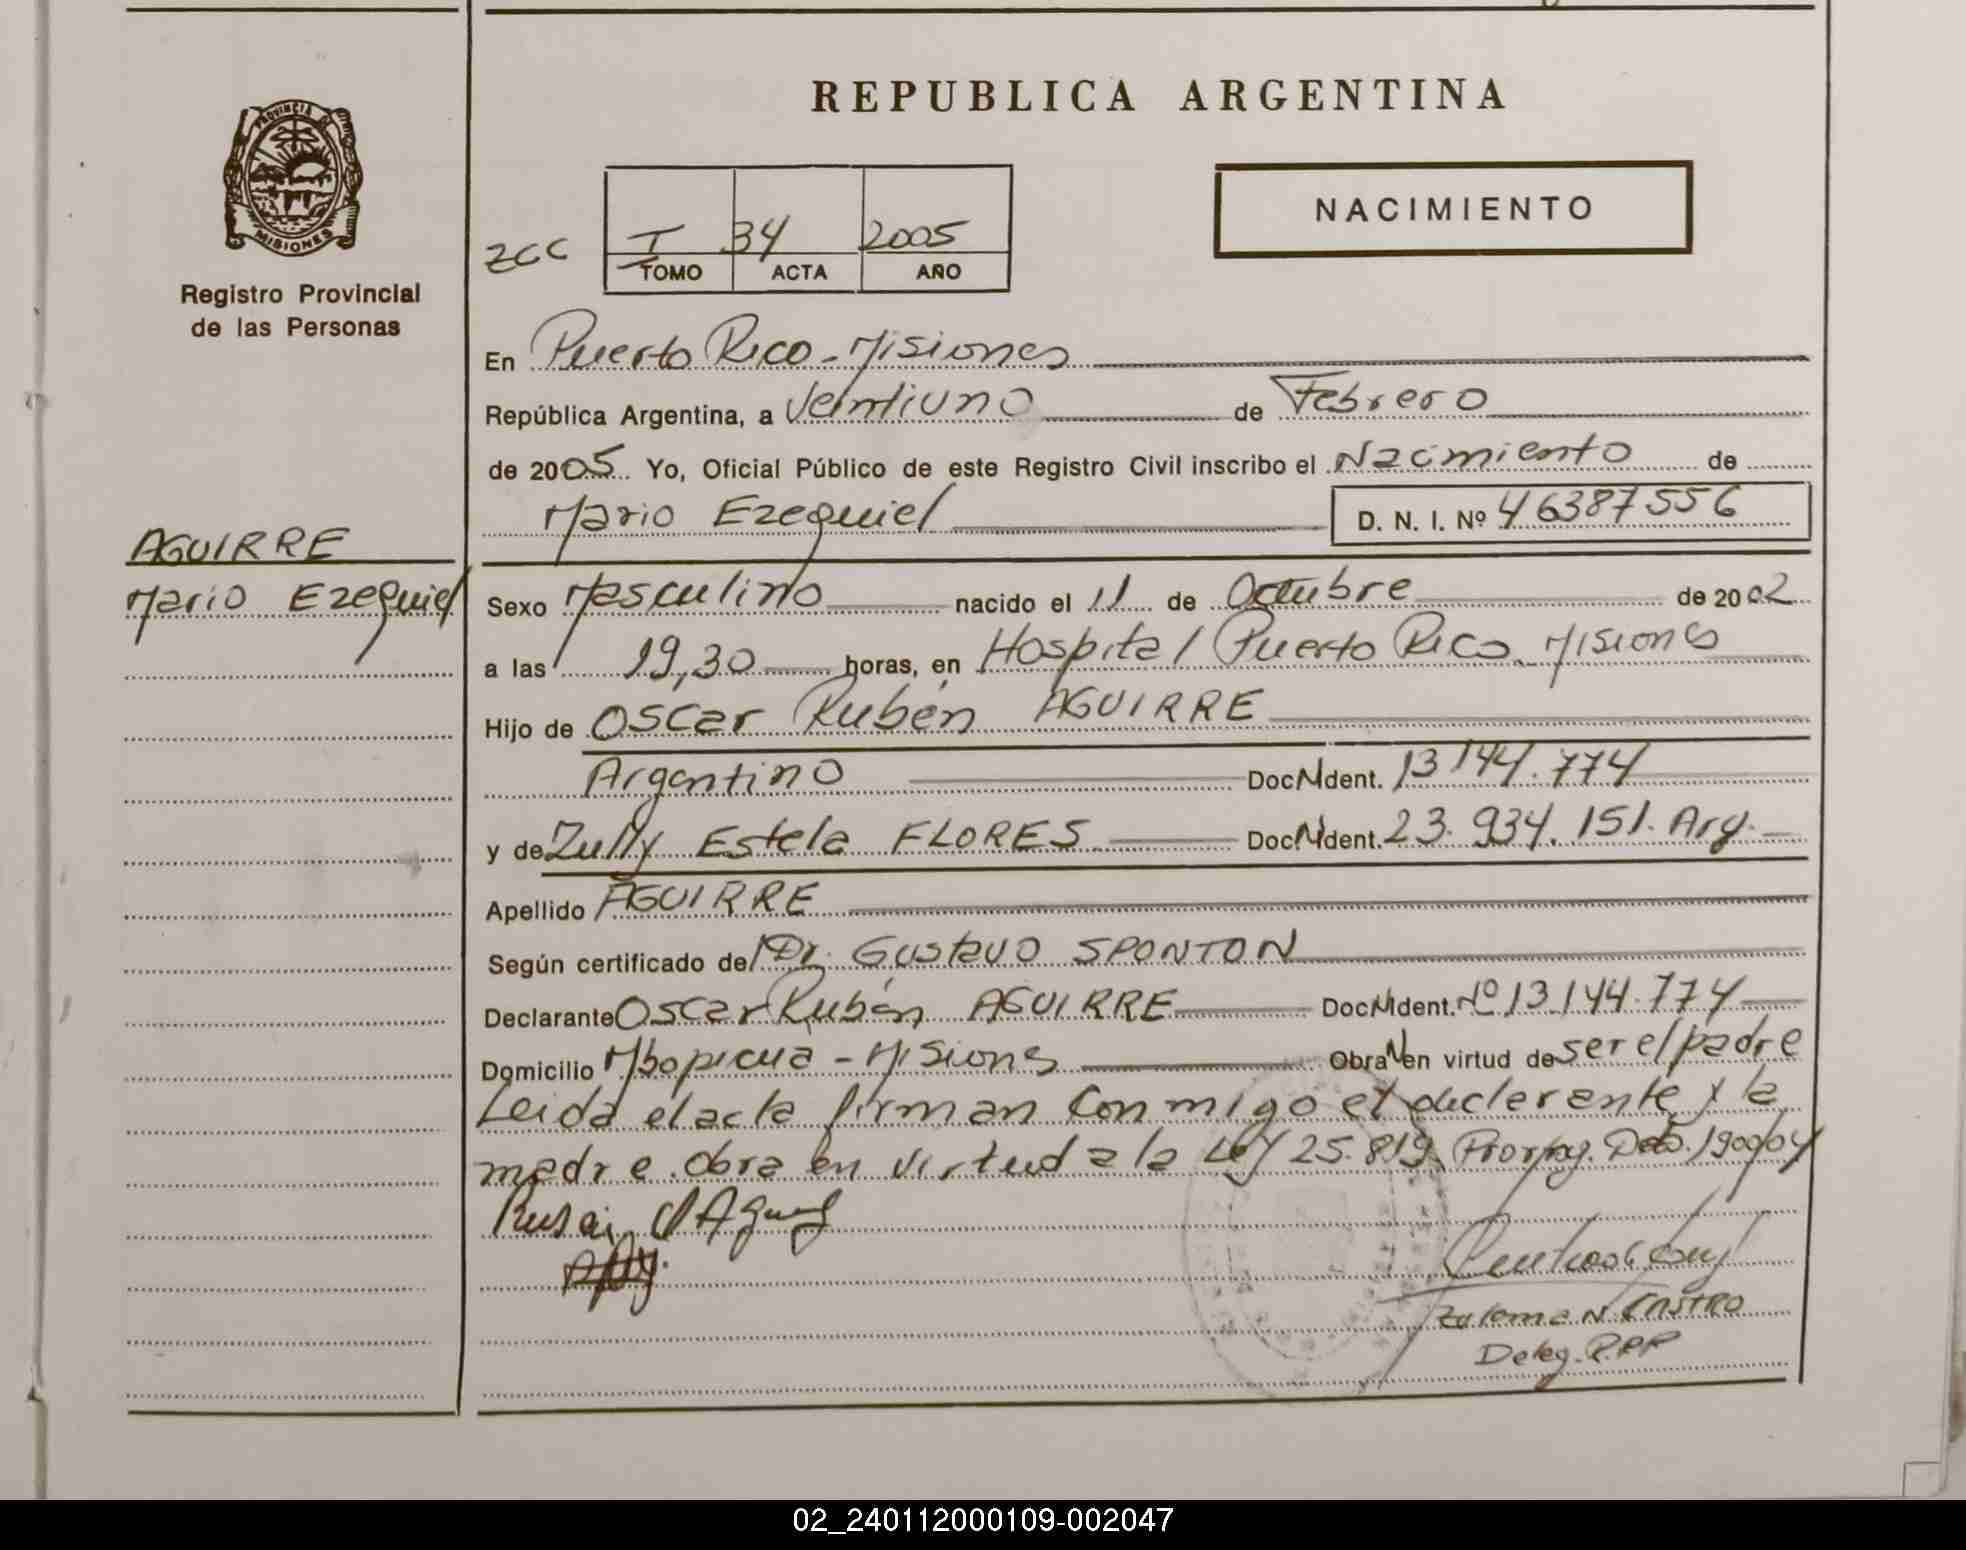 REPUBLICA ARGENTINA
PROVINCIA DE
MISIONES
Registro Provincial
de las Personas
NACIMIENTO
ZCC
T 34 2005
TOMO ACTA AÑO
En Puerto Rico - Misiones
República Argentina, a Veintiuno de Febrero
de 2005 Yo, Oficial Público de este Registro Civil inscribo el Nacimiento de
Mario Ezequiel D. N. I. Nº 46387556
AGUIRRE
Mario Ezequiel
Sexo Masculino nacido el 11 de Octubre de 2002
a las 19,30 horas, en Hospital Puerto Rico. Misiones
Hijo de Oscar Rubén AGUIRRE
Argentino Doc. N Ident. 13144.774
y de Zully Estela FLORES Doc. N Ident. 23.934.151. Arg.
Apellido AGUIRRE
Según certificado de Dr. Gustavo SPONTON
Declarante Oscar Rubén AGUIRRE Doc. N Ident. Nº 13144.774
Domicilio Mbopicua - Misions Obra N en virtud de ser el padre
Leida el acta firman conmigo el declarante y la
madre. Obra en virtud a la Ley 25.819. Prorrog. Dec. 1900/04
Zulema N. CASTRO
Deleg. R.P.P
02_240112000109-002047